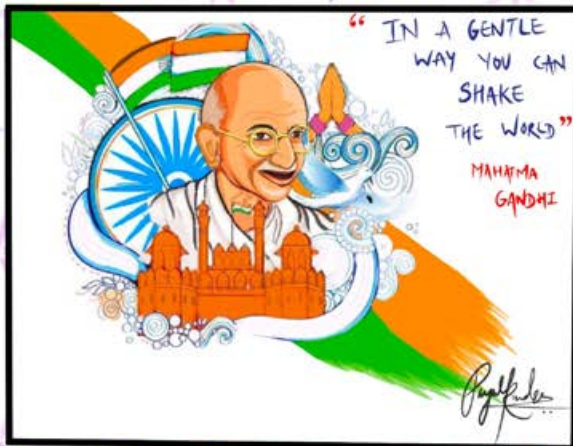 “ IN A GENTLE
WAY YOU CAN
SHAKE
THE WORLD”
MAHATMA
GANDHI